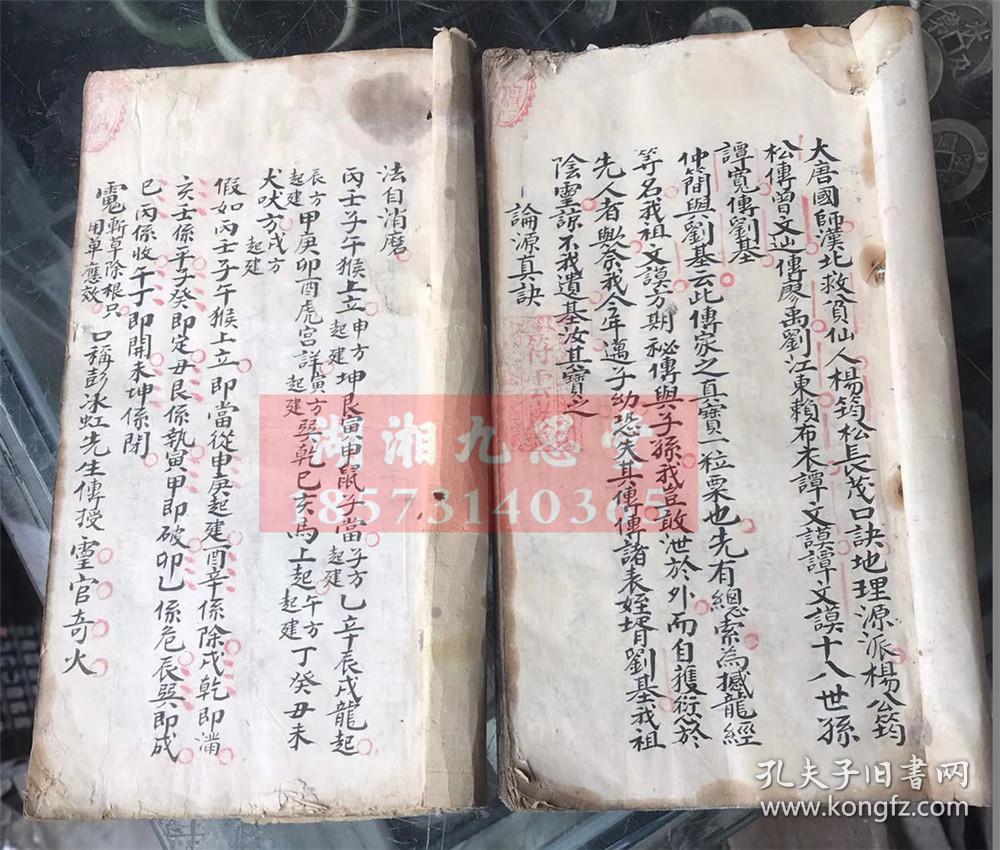 大唐國師漢北救貧仙人楊筠松長茂口訣地理源派楊公筠
松傳曾文辿傳廖禹劉江東賴布衣譚文謨譚文謨十八世孫
譚寬傳劉基
仲簡與劉基云此傳家之真寶一粒粟也先有總索為撼龍經
等名我祖文謨方期秘傳與子孫我豈敢泄於外而自獲衍於
先人者與奈我今年邁子幼恐失其傳傳諸表姪壻劉基我祖
陰靈諒不我遺基汝其寶之
論源真訣
法自消磨
丙壬子午猴上立申方起建坤艮寅申鼠子當子方起建乙辛辰戌龍起
辰方起建甲庚卯酉虎宮詳寅方起建巽乾巳亥馬上起午方起建丁癸丑未
犬吠方戌方起建
假如丙壬子午猴上立即當從申庚起建酉辛係除戌乾即滿
亥壬係平子癸即定丑艮係執寅甲即破卯乙係危辰巽即成
巳丙係收午丁即開未坤係閉
斬草除根只用單應效口稱彭泳虹先生傳授靈官奇火
湖湘九思堂
18573140365
孔夫子旧书网
www.kongfz.com